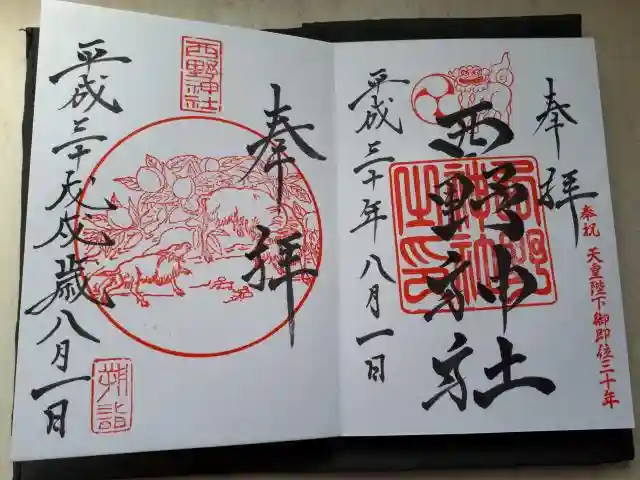 奉拝
西野神社
平成三十年八月一日
奉祝 天皇陛下御即位三十年
奉拝
西野神社
平成三十戊戌歳八月一日
朔詣